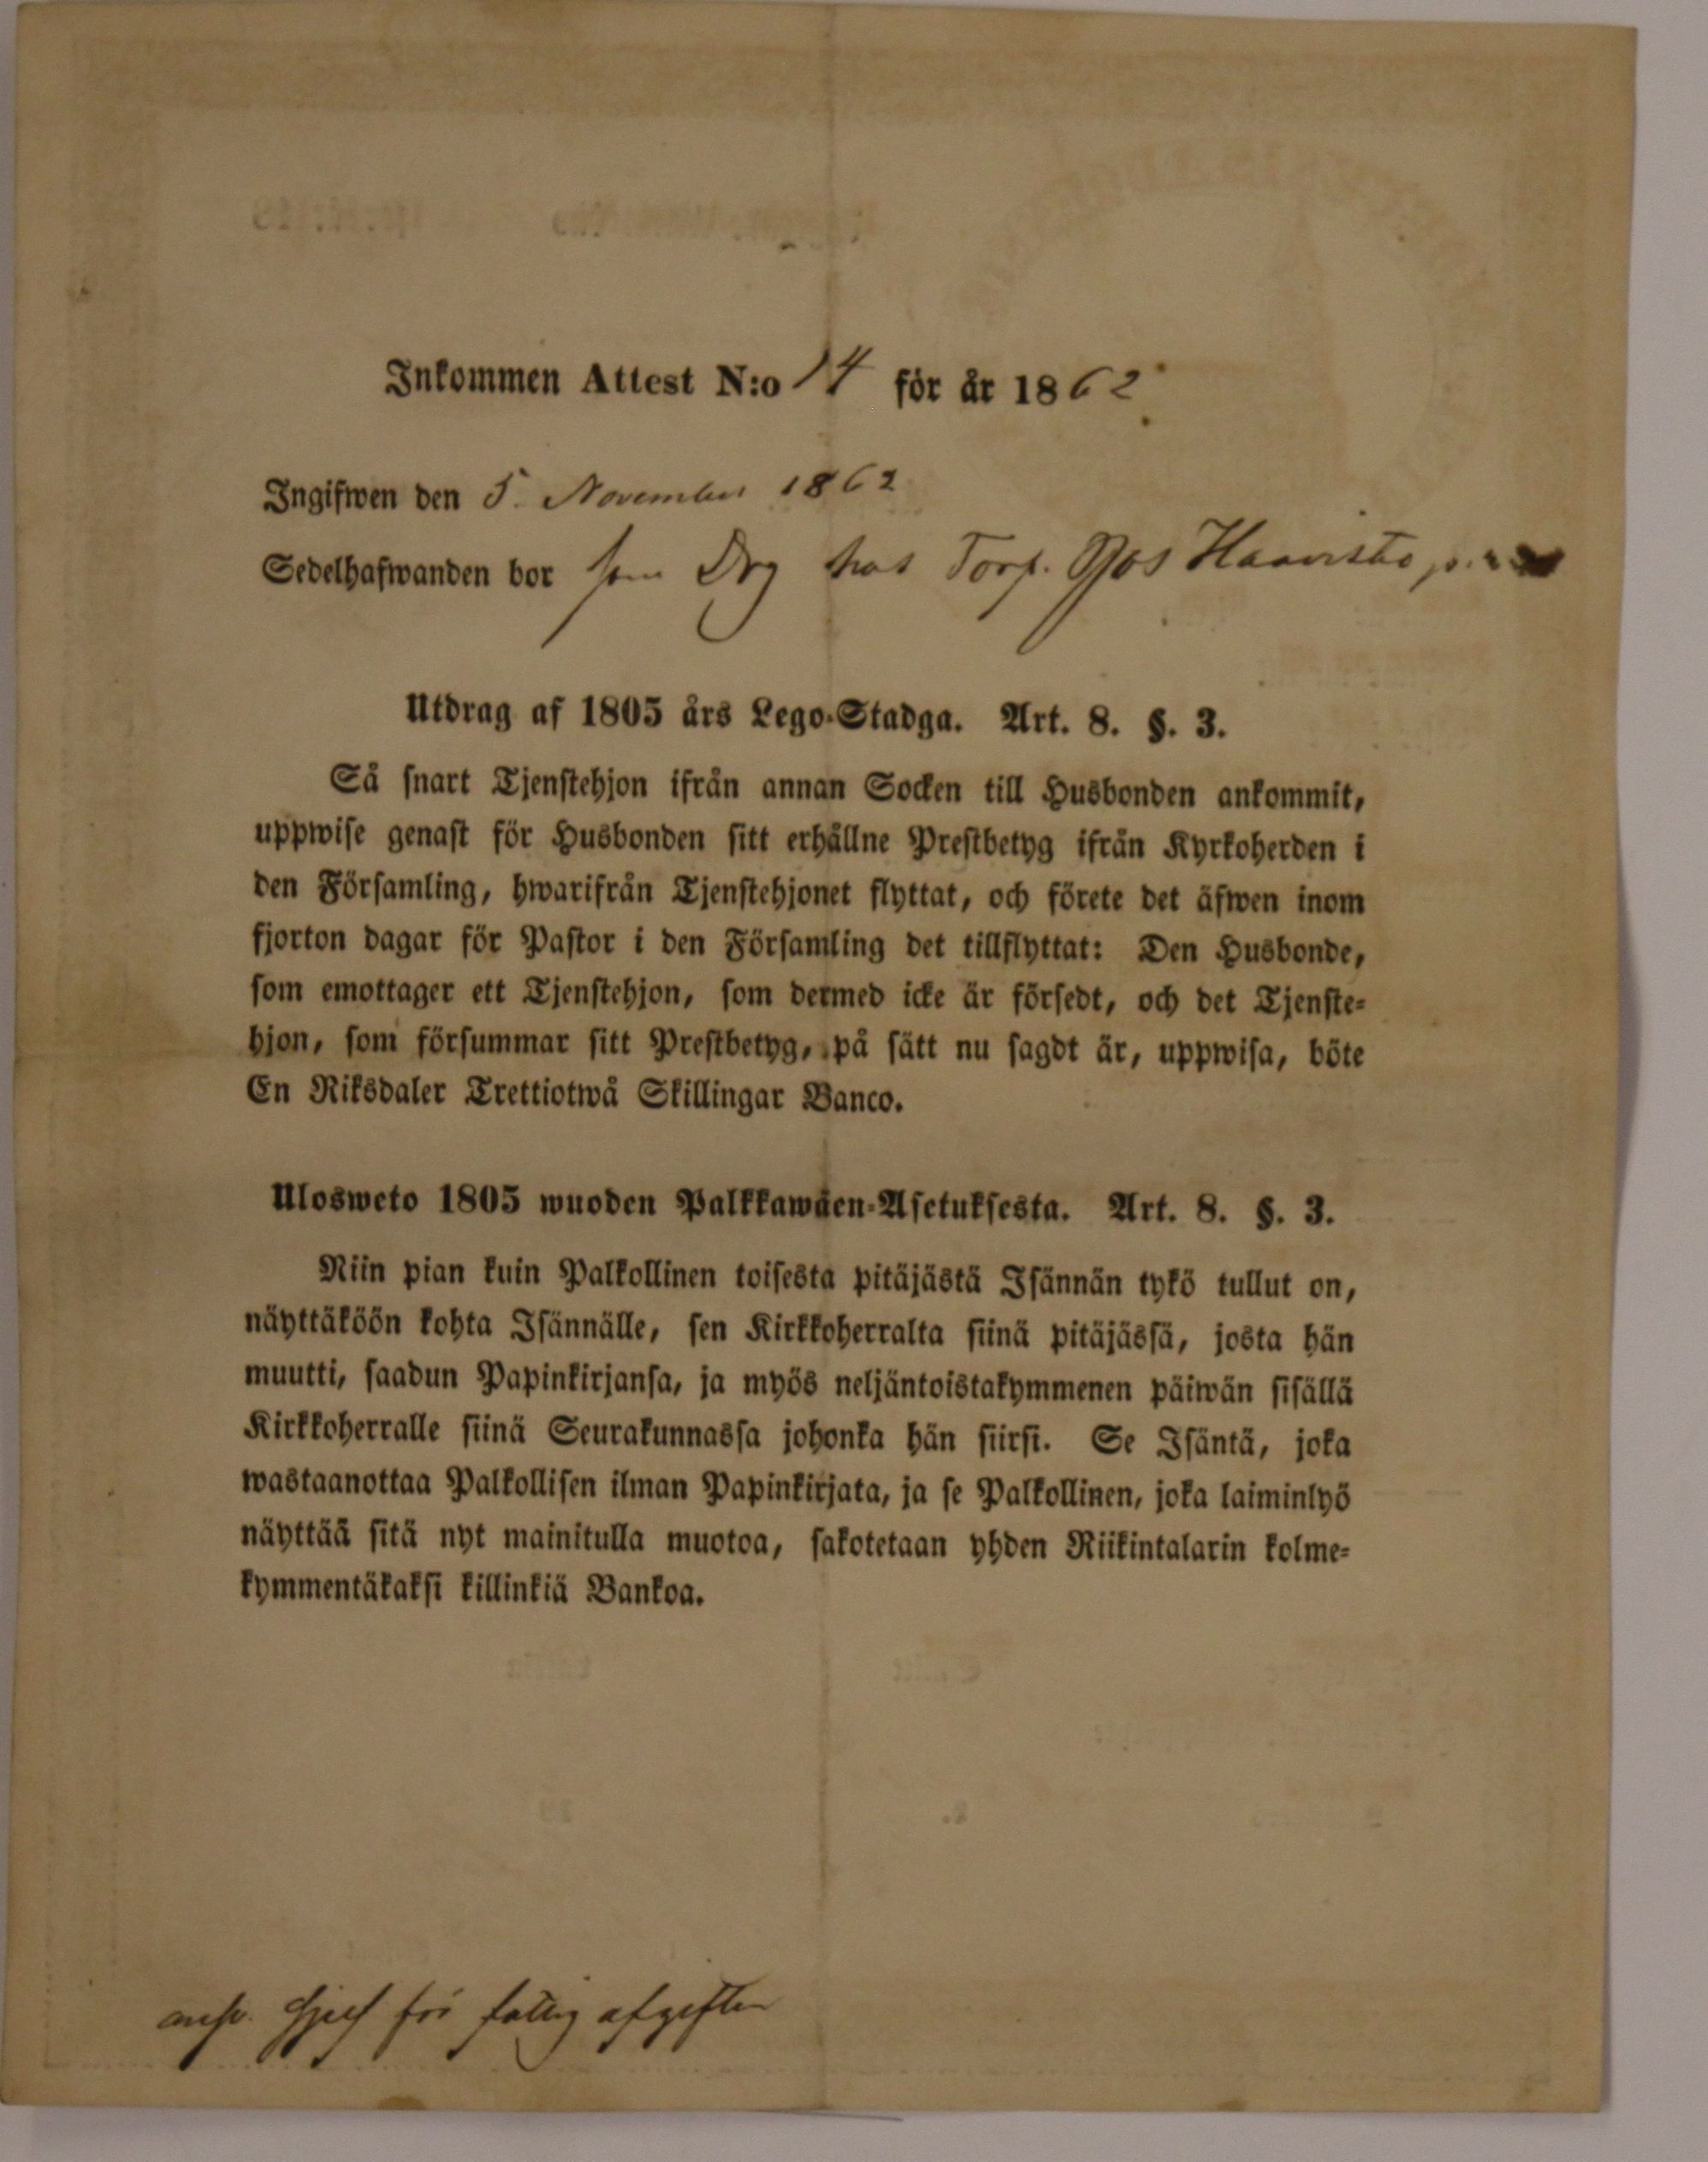 Inkommen Attest N:o 14 för år 1862
Ingifwen den 5 November 1862
Sedelhafwanden bor som Drg hos Torp. Haavisto
Utdrag af 1805 års Lego-Stadga. Art. 8. §. 3.
Så snart Tjenstehjon ifrån annan Socken till Husbonden ankommit,
uppwise genast för Husbonden sitt erhållne Prestbetyg ifrån Kyrkoherden i
den Församling, hwarifrån Tjenstehjonet flyttat, och förete det äfwen inom
fjorton dagar för Pastor i den Församling det tillflyttat: Den Husbonde,
som emottager ett Tjenstehjon, som dermed icke är försedt, och det Tjenste-
hjon, som försummar sitt Prestbetyg, på sätt nu sagdt är, uppwisa, böte
En Riksdaler Trettiotwå Skillingar Banco.
Ulosweto 1805 wuoden Palkkawäen-Asetuksesta. Art. 8. §. 3.
Niin pian kuin Palkollinen toisesta pitäjästä Isännän tykö tullut on,
näyttäköön kohta Isännälle, sen Kirkkoherralta siinä pitäjässä, josta hän
muutti, saadun Papinkirjansa, ja myös neljäntoistakymmenen päiwän sisällä
Kirkkoherralle siinä Seurakunnassa johonka hän siirsi. Se Isäntä, joka
wastaanottaa Palkollisen ilman Papinkirjata, ja se Palkollinen, joka laiminlyö
näyttää sitä nyt mainitulla muotoa, sakotetaan yhden Riikintalarin kolme-
kymmentäkaksi killinkiä Bankoa.
ansv. sjelf för fattig afgiften